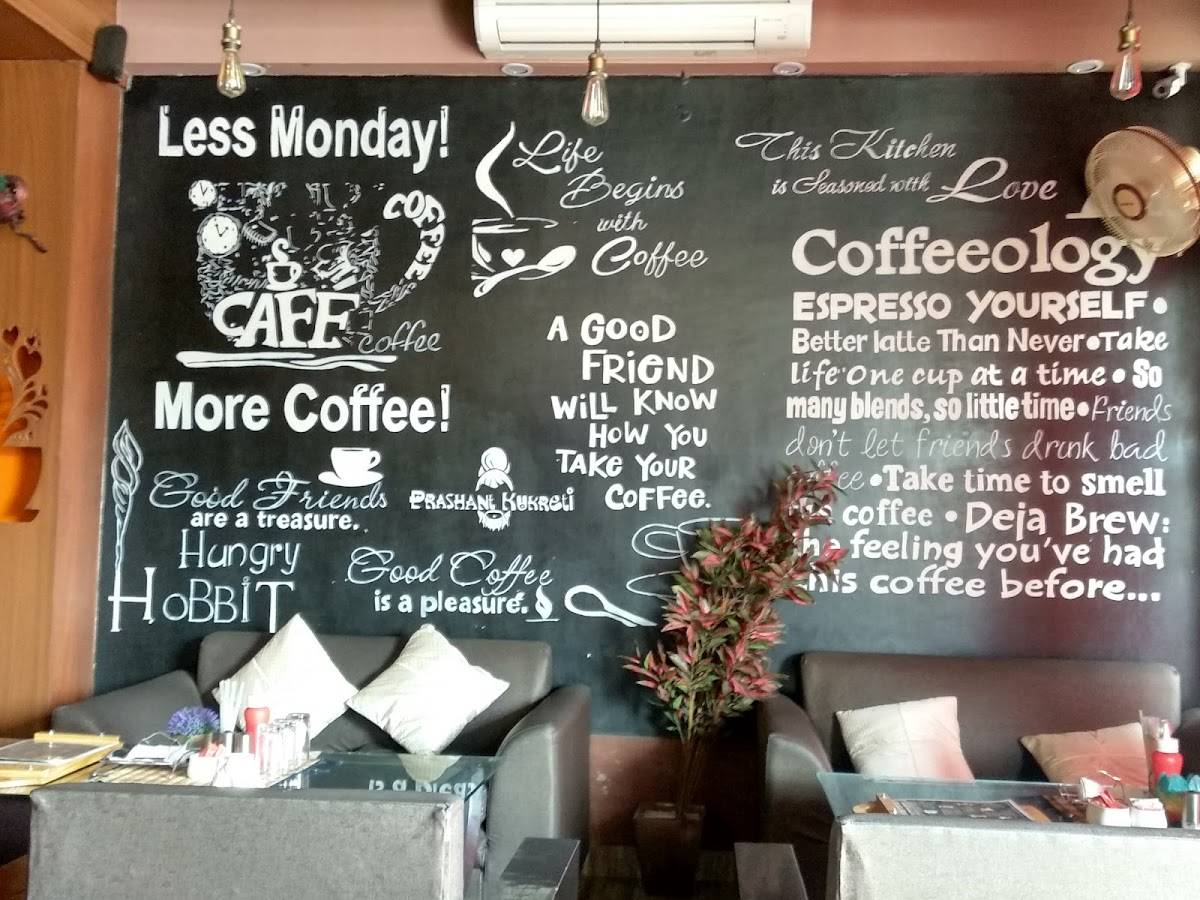 Less Monday!
COFFEE
CAFE
coffee
More Coffee!
Good Friends
are a treasure.
Hungry
HoBBiT
Life
Begins
with
Coffee
A GOOD
FRIEND
WILL KNOW
HOW YOU
TAKE YOUR
COFFEE.
PRASHANt KUKRETi
Good Coffee
is a pleasure.
This Kitchen
is Seasoned with Love
Coffeeology
ESPRESSO YOURSELF •
Better latte Than Never • Take
life one cup at a time • So
many blends, so little time • Friends
don't let friends drink bad
• Take time to smell
coffee • Deja Brew:
the feeling you've had
this coffee before...